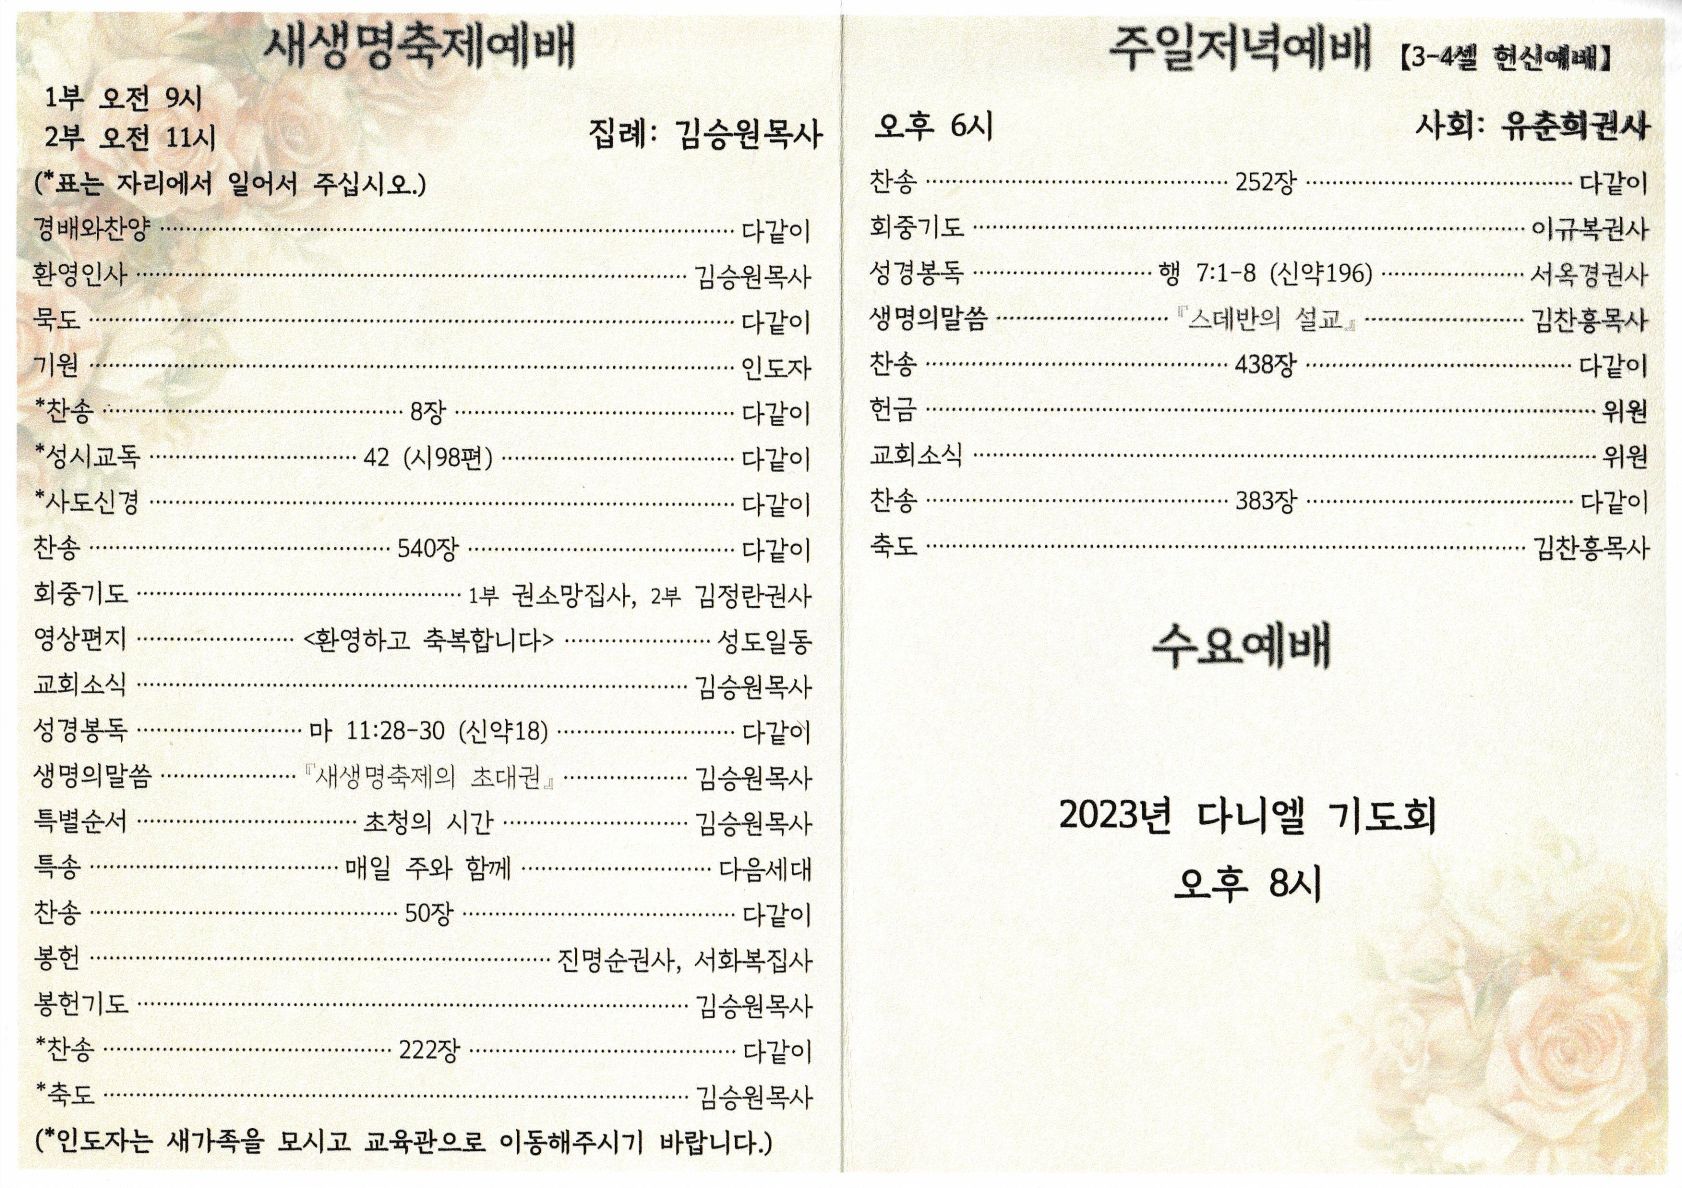 새생명축제예배
1부 오전 9시
2부 오전 11시
집례: 김승원목사
(*표는 자리에서 일어서 주십시오.)
경배와찬양 다같이
환영인사 김승원목사
묵도 다같이
기원 인도자
*찬송 8장 다같이
*성시교독 42 (시98편) 다같이
*사도신경 다같이
찬송 540장 다같이
회중기도 1부 권소망집사, 2부 김정란권사
영상편지 <환영하고 축복합니다> 성도일동
교회소식 김승원목사
성경봉독 마 11:28-30 (신약18) 다같이
생명의말씀 『새생명축제의 초대권』 김승원목사
특별순서 초청의 시간 김승원목사
특송 매일 주와 함께 다음세대
찬송 50장 다같이
봉헌 진명순권사, 서화복집사
봉헌기도 김승원목사
*찬송 222장 다같이
*축도 김승원목사
(*인도자는 새가족을 모시고 교육관으로 이동해주시기 바랍니다.)
주일저녁예배 【3-4셀 헌신예배】
오후 6시 사회: 유춘희권사
찬송 252장 다같이
회중기도 이규복권사
성경봉독 행 7:1-8 (신약196) 서옥경권사
생명의말씀 『스데반의 설교』 김찬흥목사
찬송 438장 다같이
헌금 위원
교회소식 위원
찬송 383장 다같이
축도 김찬흥목사
수요예배
2023년 다니엘 기도회
오후 8시